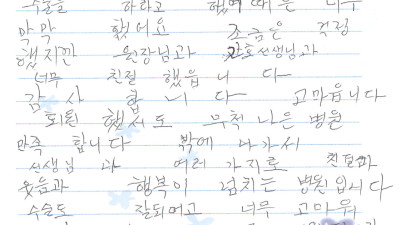 수술을 하라고 했을 때는 너무
막막 했어요 조금은 걱정
했지만 원장님과 간호선생님과
너무 친절 했읍니다
감사 합니다 고마웁니다
퇴원 했서도 무척 나은 병원
만족 합니다 밖에 나가서
선생님과 여러 가지로
웃음과 행복이 넘치는 병원입니다
수술도 잘되며고 너무 고마워